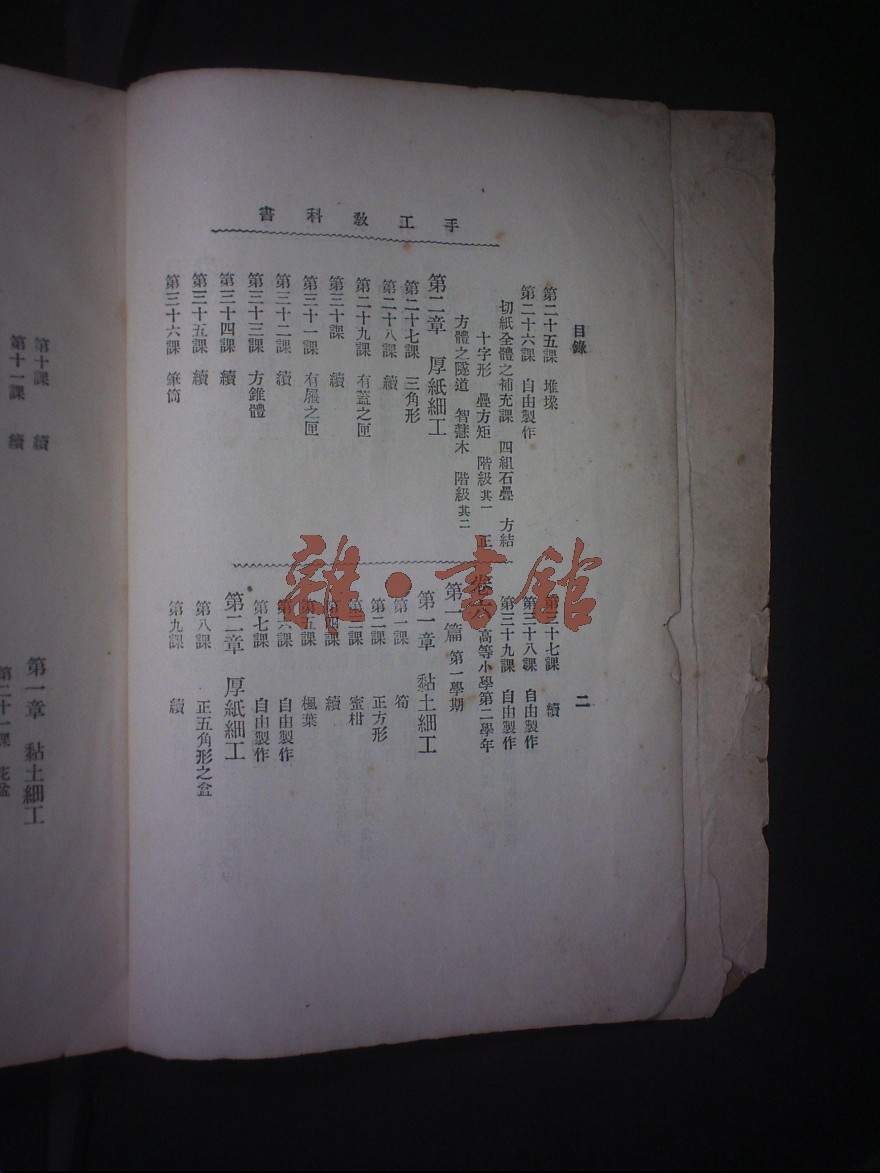 手工教科書
目錄
二
第二十五課 堆垛
第二十六課 自由製作
切紙全體之補充課 四組石疊 方結
十字形 疊方矩 階級其一 正
方體之隧道 智慧木 階級其二
第二章 厚紙細工
第二十七課 三角形
第二十八課 續
第二十九課 有蓋之匣
第三十課 續
第三十一課 有屜之匣
第三十二課 續
第三十三課 方錐體
第三十四課 續
第三十五課 續
第三十六課 筆筒
第三十七課 續
第三十八課 自由製作
第三十九課 自由製作
卷六 高等小學第二學年
第一篇 第一學期
第一章 黏土細工
第一課 筍
第二課 正方形
第三課 蜜柑
第四課 續
第五課 楓葉
第六課 自由製作
第七課 自由製作
第二章 厚紙細工
第八課 正五角形之盒
第九課 續
第十課 續
第十一課 續
第一章 黏土細工
第二十一課 花盆
雜·書館